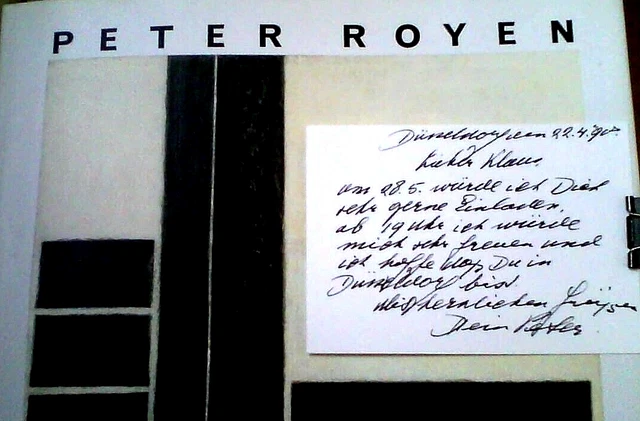 PETER ROYEN
Düsseldorf den 22.4.90.
Lieber Klaus
am 28.5. würde ich Dich
sehr gerne Einladen.
ab 19 Uhr ich würde
mich sehr freuen und
ich hoffe das Du in
Düsseldorf bist.
herzlichen Grüßen
Dein Peter